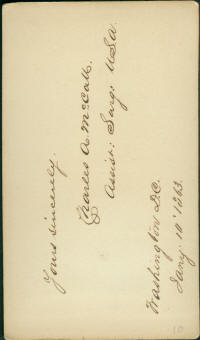 Yours sincerely.
Charles A. McCall.
Assist: Surg: USA.
Washington D.C.
Jany. 10' 1863.
10